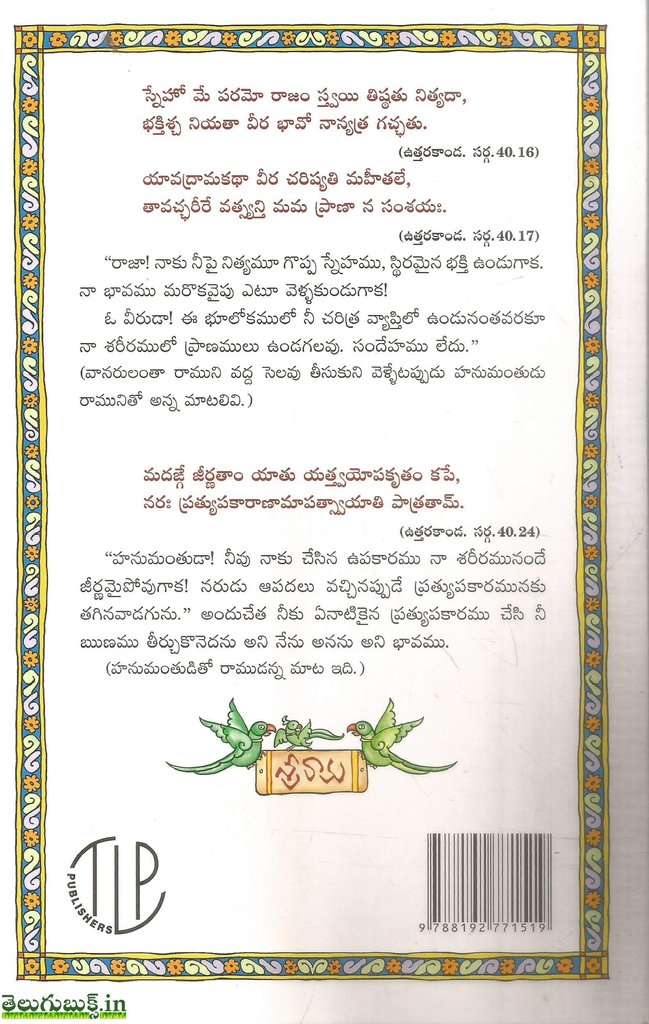 స్నేహో మే పరమో రాజం స్త్వయి తిష్ఠతు నిత్యదా,
భక్తిశ్చ నియతా వీర భావో నాన్యత్ర గచ్ఛతు.
(ఉత్తరకాండ. సర్గ.40.16)
యావద్రామకథా వీర చరిష్యతి మహీతలే,
తావచ్ఛరీరే వత్స్యన్తి మమ ప్రాణా న సంశయః.
(ఉత్తరకాండ. సర్గ.40.17)
“రాజా! నాకు నీపై నిత్యమూ గొప్ప స్నేహము, స్థిరమైన భక్తి ఉండుగాక.
నా భావము మరొకవైపు ఎటూ వెళ్ళకుండుగాక!
ఓ వీరుడా! ఈ భూలోకములో నీ చరిత్ర వ్యాప్తిలో ఉండునంతవరకూ
నా శరీరములో ప్రాణములు ఉండగలవు. సందేహము లేదు.”
(వానరులంతా రాముని వద్ద సెలవు తీసుకుని వెళ్ళేటప్పుడు హనుమంతుడు
రామునితో అన్న మాటలివి.)
మదఙ్గే జీర్ణతాం యాతు యత్త్వయోపకృతం కపే,
నరః ప్రత్యుపకారాణామాపత్స్వాయాతి పాత్రతామ్.
(ఉత్తరకాండ. సర్గ.40.24)
“హనుమంతుడా! నీవు నాకు చేసిన ఉపకారము నా శరీరమునందే
జీర్ణమైపోవుగాక! నరుడు ఆపదలు వచ్చినప్పుడే ప్రత్యుపకారమునకు
తగినవాడగును.” అందుచేత నీకు ఏనాటికైన ప్రత్యుపకారము చేసి నీ
ఋణము తీర్చుకొనెదను అని నేను అనను అని భావము.
(హనుమంతుడితో రాముడన్న మాట ఇది.)
శ్రీరామ
TLP
PUBLISHERS
9 788192 771519
తెలుగుబుక్స్.in